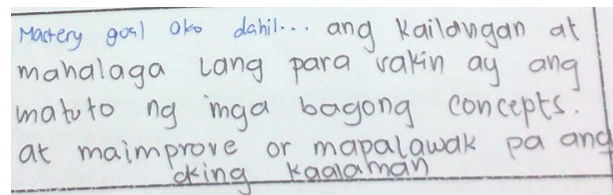 Mastery goal ako dahil... ang kailangan at
mahalaga lang para sakin ay ang
matuto ng mga bagong concepts.
at maimprove or mapalawak pa ang
aking kaalaman